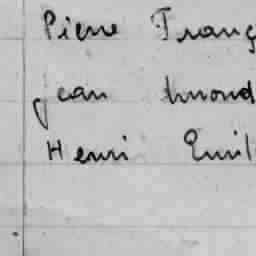 Pierre Franç
Jean
Henri Emil